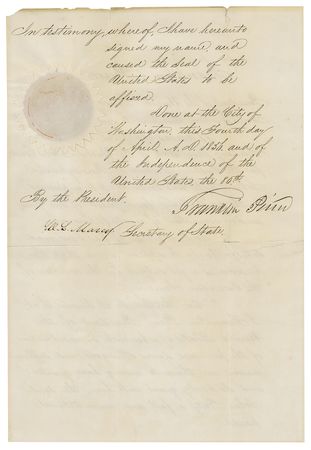 In testimony, whereof, I have hereunto
signed my name, and
caused the seal of the
United States to be
affixed.
Done at the City of
Washington, this Fourth day
of April, A.D. 1856, and of
the Independence of the
United States, the 80th.
By the President.
Franklin Pierce
W. L. Marcy Secretary of State.